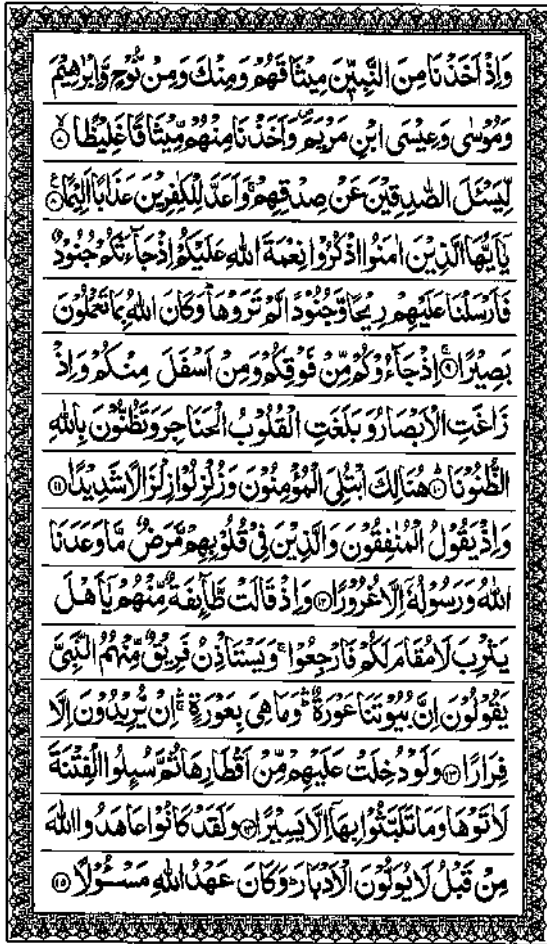 وَاِذْ اَخَذْنَا مِنَ النَّبِيّٖنَ مِيْثَاقَهُمْ وَمِنْكَ وَمِنْ نُّوْحٍ وَّاِبْرٰهِيْمَ
وَمُوْسٰى وَعِيْسَى ابْنِ مَرْيَمَ ۪ وَاَخَذْنَا مِنْهُمْ مِّيْثَاقًا غَلِيْظًا ۙ﴿۷﴾
لِّيَسْئَلَ الصّٰدِقِيْنَ عَنْ صِدْقِهِمْ ۚ وَاَعَدَّ لِلْكٰفِرِيْنَ عَذَابًا اَلِيْمًا ﴿۸﴾
يٰۤاَيُّهَا الَّذِيْنَ اٰمَنُوا اذْكُرُوْا نِعْمَةَ اللّٰهِ عَلَيْكُمْ اِذْ جَآءَتْكُمْ جُنُوْدٌ
فَاَرْسَلْنَا عَلَيْهِمْ رِيْحًا وَّجُنُوْدًا لَّمْ تَرَوْهَا ؕ وَكَانَ اللّٰهُ بِمَا تَعْمَلُوْنَ
بَصِيْرًا ۚ﴿۹﴾ اِذْ جَآءُوْكُمْ مِّنْ فَوْقِكُمْ وَمِنْ اَسْفَلَ مِنْكُمْ وَاِذْ
زَاغَتِ الْاَبْصَارُ وَبَلَغَتِ الْقُلُوْبُ الْحَنَاجِرَ وَتَظُنُّوْنَ بِاللّٰهِ
الظُّنُوْنَا ؕ﴿۱۰﴾ هُنَالِكَ ابْتُلِيَ الْمُؤْمِنُوْنَ وَزُلْزِلُوْا زِلْزَالًا شَدِيْدًا ﴿۱۱﴾
وَاِذْ يَقُوْلُ الْمُنٰفِقُوْنَ وَالَّذِيْنَ فِيْ قُلُوْبِهِمْ مَّرَضٌ مَّا وَعَدَنَا
اللّٰهُ وَرَسُوْلُهٗۤ اِلَّا غُرُوْرًا ﴿۱۲﴾ وَاِذْ قَالَتْ طَّآئِفَةٌ مِّنْهُمْ يٰۤاَهْلَ
يَثْرِبَ لَا مُقَامَ لَكُمْ فَارْجِعُوْا ۚ وَيَسْتَاْذِنُ فَرِيْقٌ مِّنْهُمُ النَّبِيَّ
يَقُوْلُوْنَ اِنَّ بُيُوْتَنَا عَوْرَةٌ ۛؕ وَمَا هِيَ بِعَوْرَةٍ ۛۚ اِنْ يُّرِيْدُوْنَ اِلَّا
فِرَارًا ﴿۱۳﴾ وَلَوْ دُخِلَتْ عَلَيْهِمْ مِّنْ اَقْطَارِهَا ثُمَّ سُئِلُوا الْفِتْنَةَ
لَاٰتَوْهَا وَمَا تَلَبَّثُوْا بِهَاۤ اِلَّا يَسِيْرًا ﴿۱۴﴾ وَلَقَدْ كَانُوْا عَاهَدُوا اللّٰهَ
مِنْ قَبْلُ لَا يُوَلُّوْنَ الْاَدْبَارَ ؕ وَكَانَ عَهْدُ اللّٰهِ مَسْئُوْلًا ﴿۱۵﴾